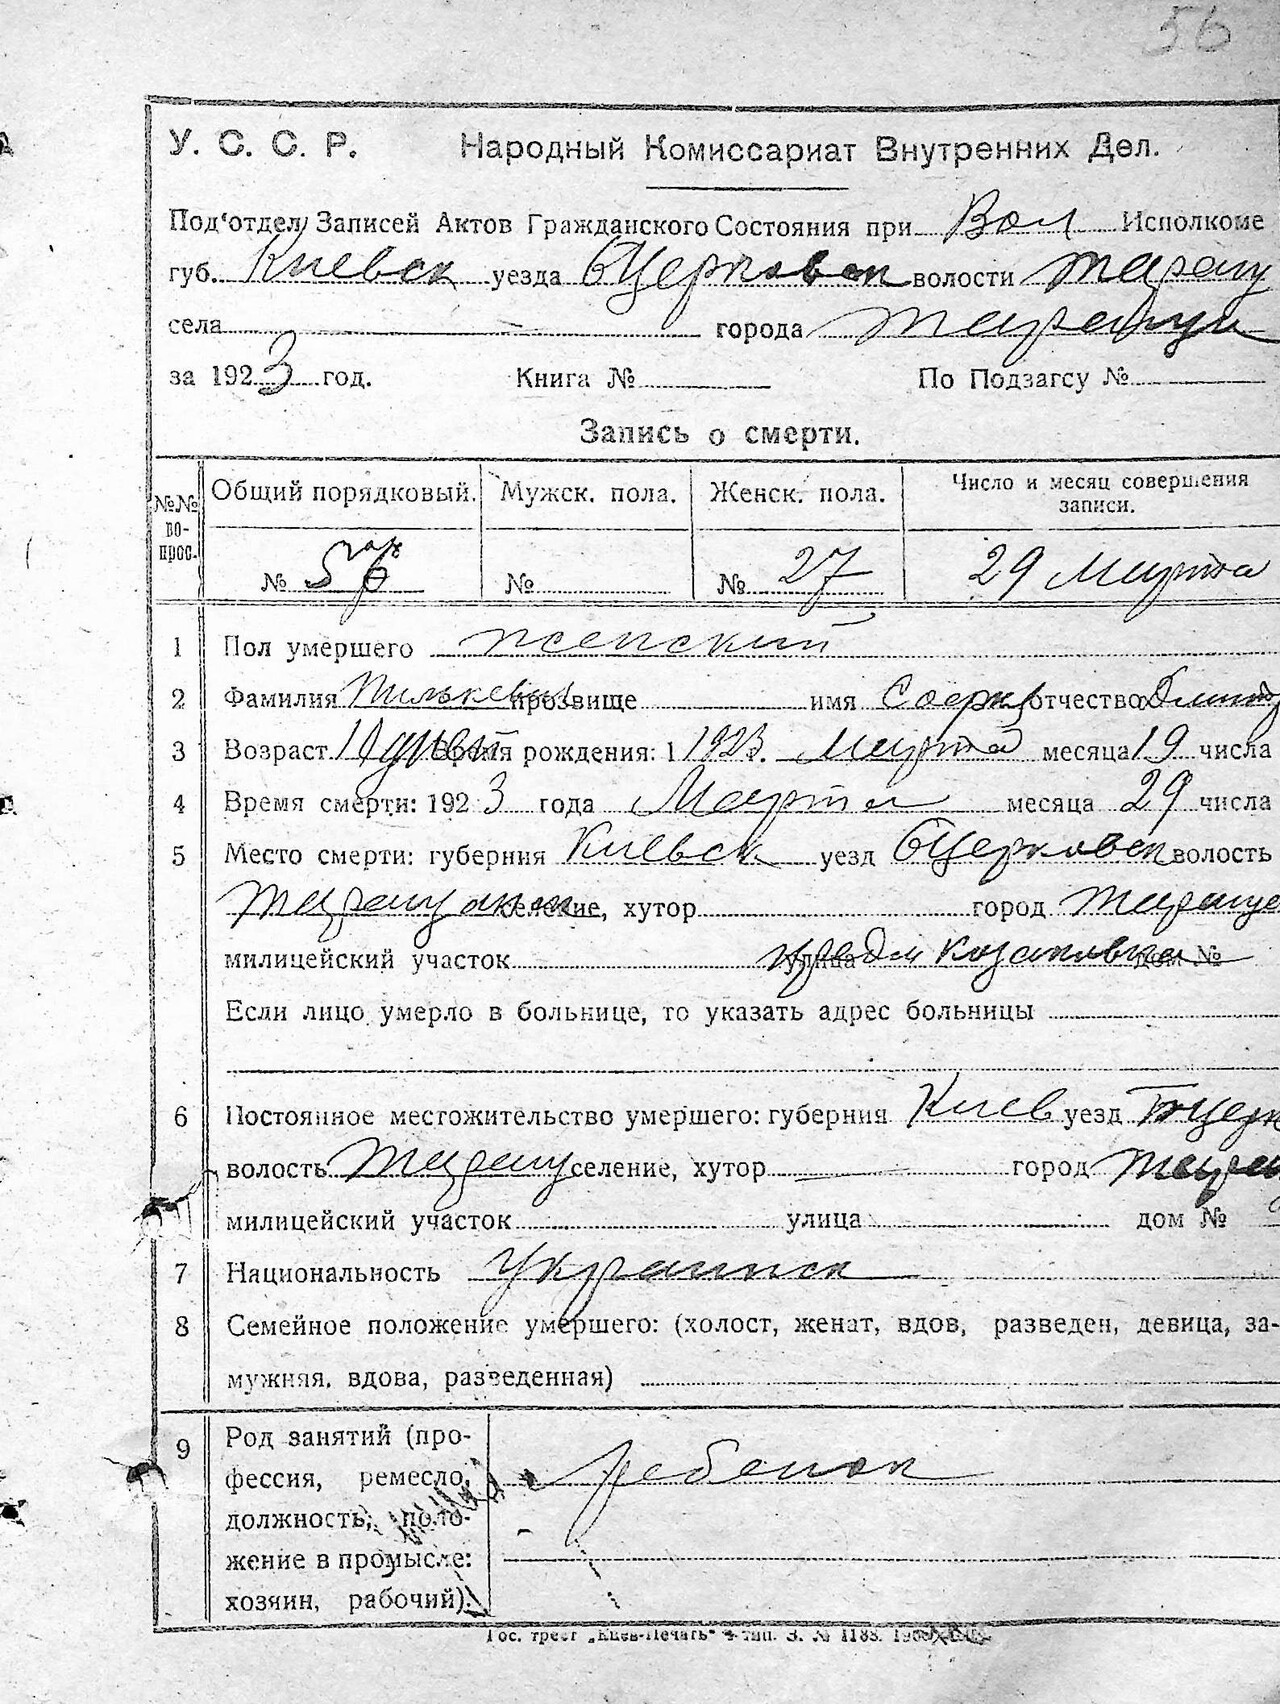 56
У. С. С. Р. Народный Комиссариат Внутренних Дел.
Под'отдел Записей Актов Гражданского Состояния при Вол Исполкоме
губ. Киевск уезда БЦерковск волости Таращ
села города Тараща
за 1923 год. Книга № По Подзагсу №
Запись о смерти.
№№ вопрос. Общий порядковый. Мужск. пола. Женск. пола. Число и месяц совершения записи.
№ 56 № № 27 29 Марта
1 Пол умершего женский
2 Фамилия прозвище имя отчество
3 Возраст 10 дней Время рождения: 1 1923. Марта месяца 19 числа
4 Время смерти: 1923 года Марта месяца 29 числа
5 Место смерти: губерния Киевск уезд БЦерковск волость
Таращанск селение, хутор город Тараща
милицейский участок улица дом №
Если лицо умерло в больнице, то указать адрес больницы
6 Постоянное местожительство умершего: губерния Киев уезд БЦерк
волость Таращ селение, хутор город Таращ
милицейский участок улица дом №
7 Национальность Украинск
8 Семейное положение умершего: (холост, женат, вдов, разведен, девица, за-
мужняя, вдова, разведенная)
9 Род занятий (про-
фессия, ремесло, ребенок
должность, поло-
жение в промысле:
хозяин, рабочий).
Гос. трест „Киев-Печать" 4 тип. З. № 1188.